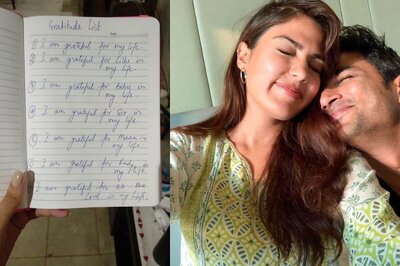 Gratitude List
Date
① I am grateful for
my life.
② I am grateful for Lillu in
my life.
③ I am grateful for Bebu in
my life
④ I am grateful for Sir in
my life
⑤ I am grateful for Ma'am in
my life.
⑥ I am grateful for Fudge in
my life
I am grateful for all the
love in my life.